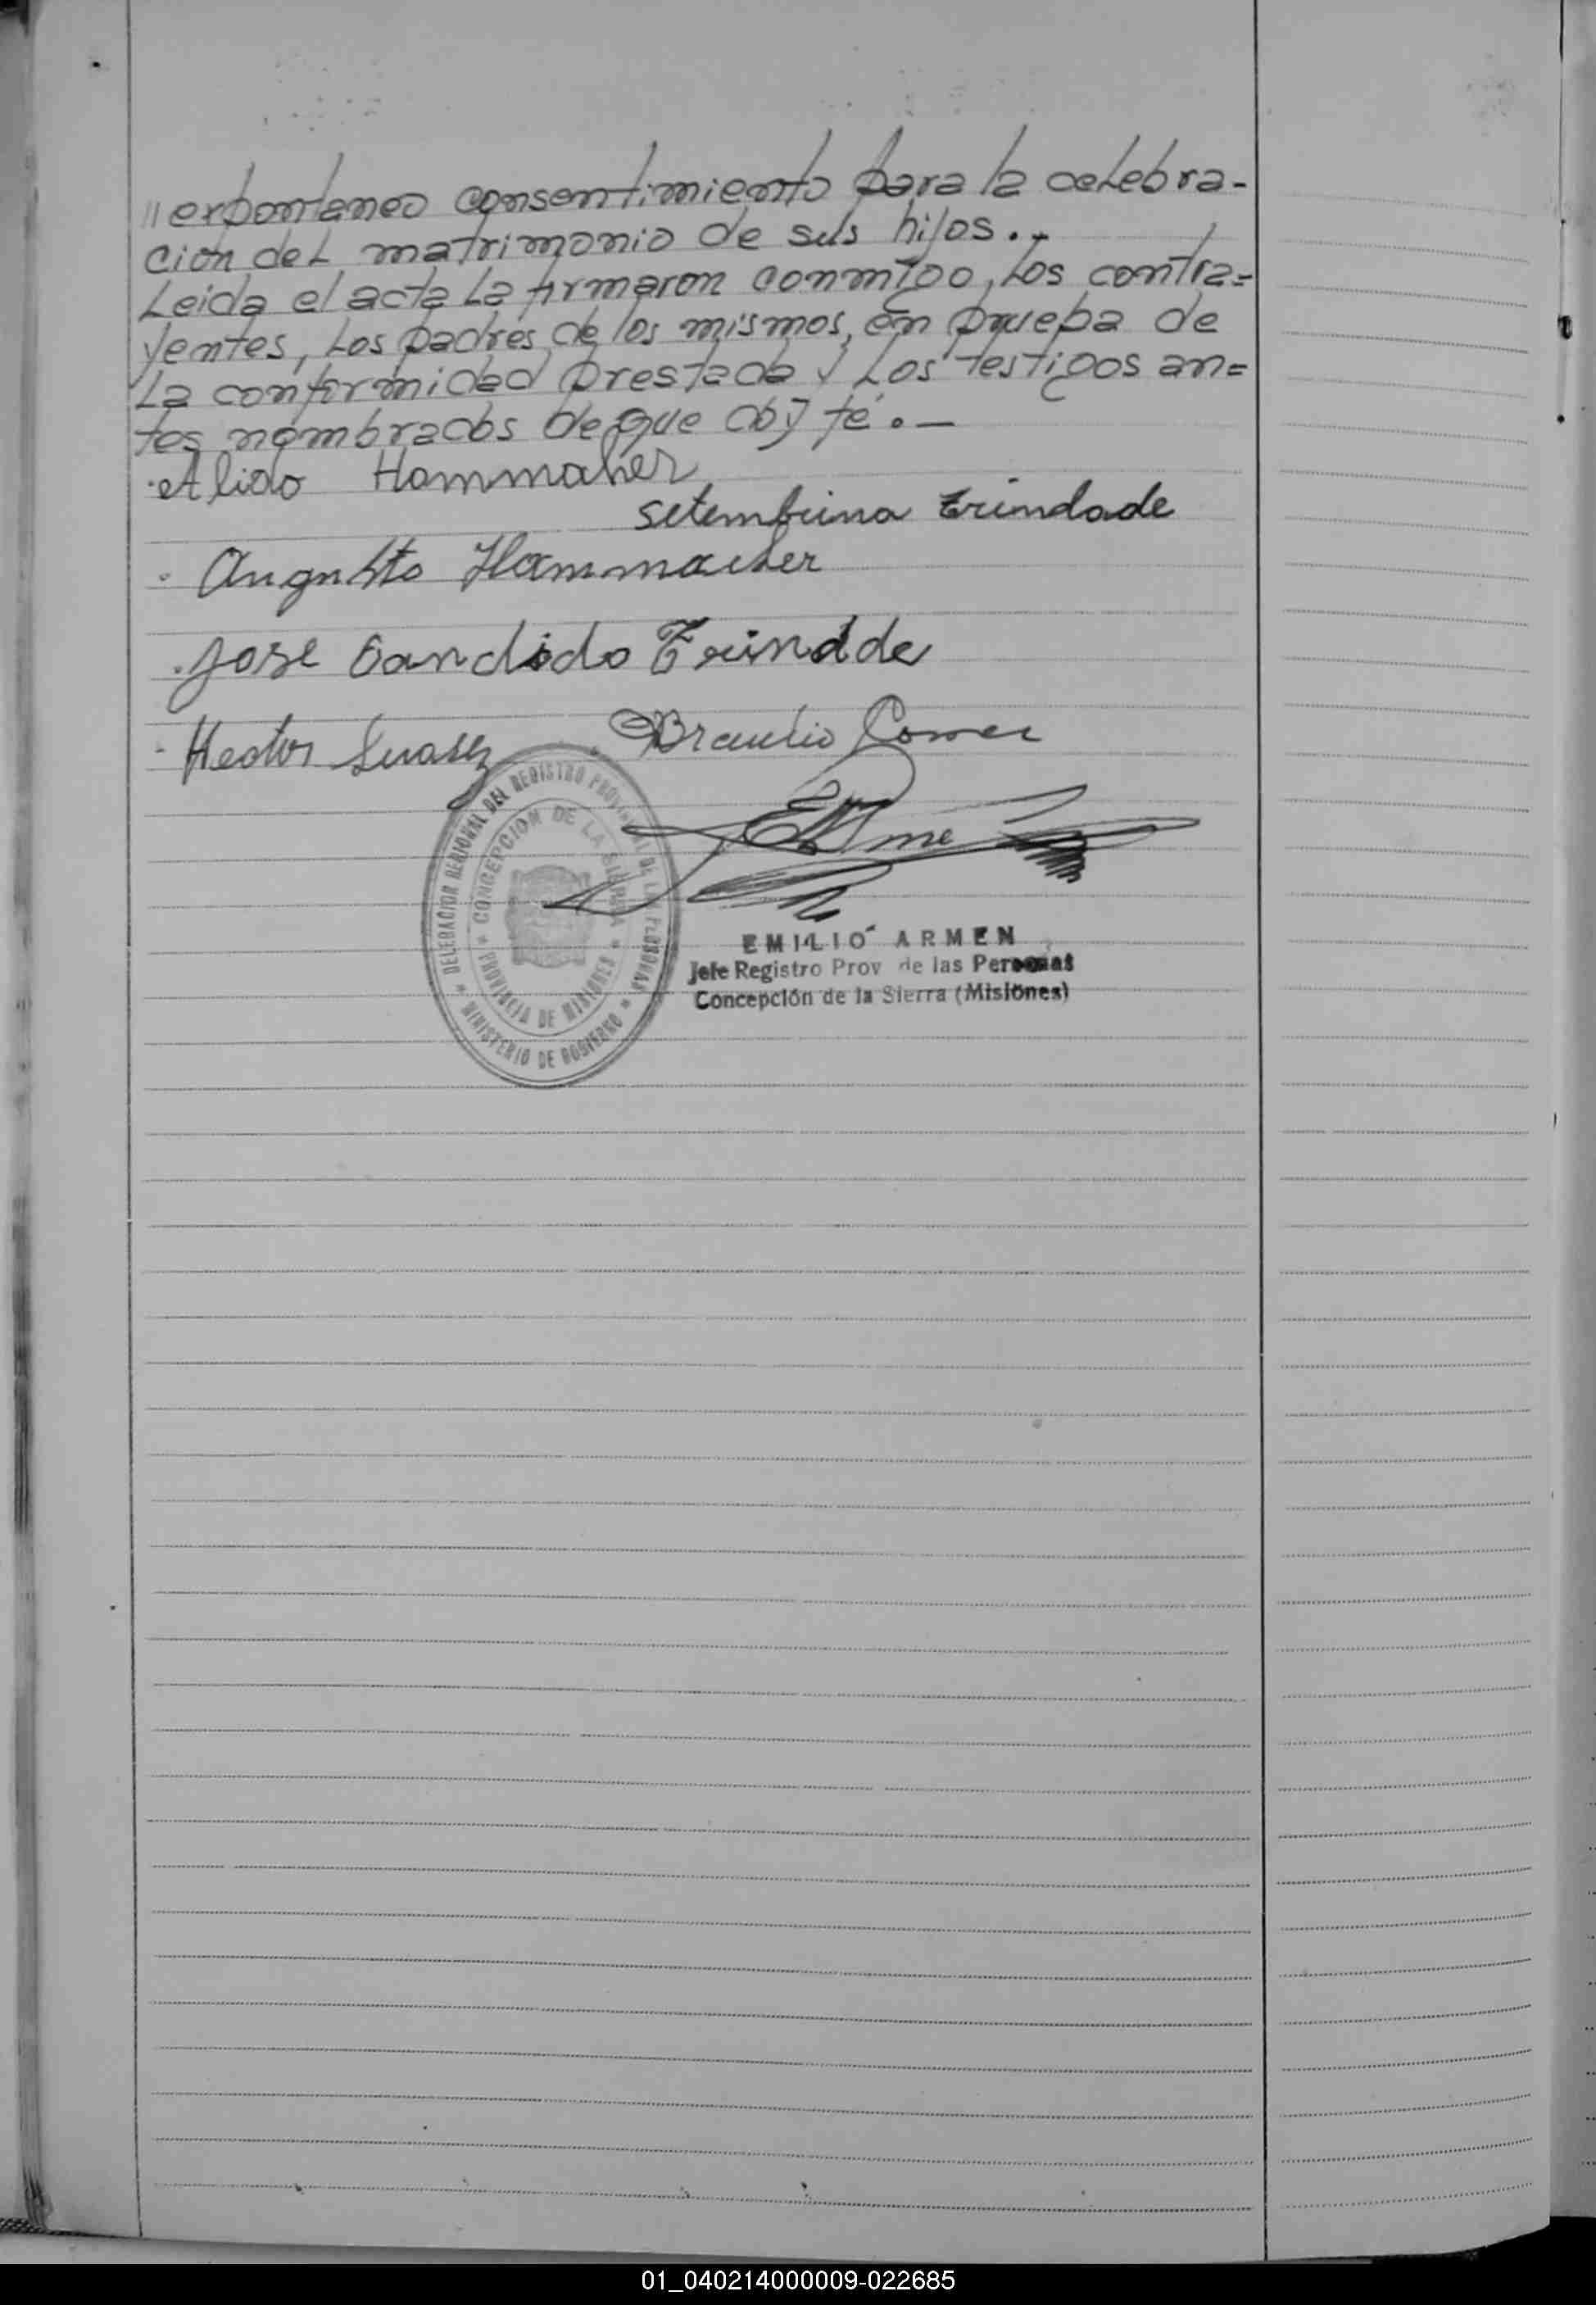 // expontaneo consentimiento para la celebra-
ción del matrimonio de sus hijos.-
Leida el acta la firmaron conmigo, los contra=
yentes, los padres de los mismos, en prueba de
la conformidad prestada y los testigos an=
tes nombrados de que doy fé.-
Alido Hammaher
setembrina Trindade
Augusto Hammacher
Jose Candido Trindde
Hector Suasez
Braulio Gomez
DELEGACION REGIONAL DEL REGISTRO PROVINCIAL DE LAS PERSONAS
CONCEPCION DE LA SIERRA
PROVINCIA DE MISIONES
MINISTERIO DE GOBIERNO
EMILIO ARMEN
Jefe Registro Prov de las Personas
Concepción de la Sierra (Misiones)
01_040214000009-022685